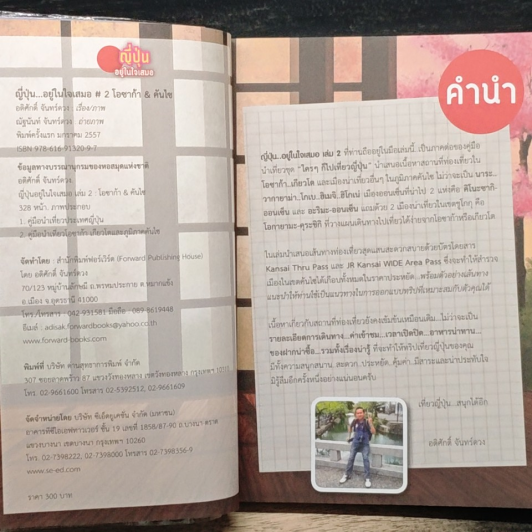 ญี่ปุ่น
อยู่ในใจเสมอ
ญี่ปุ่น...อยู่ในใจเสมอ # 2 โอซาก้า & คันไซ
อดิศักดิ์ จันทร์ดวง : เรื่อง/ภาพ
ณัฐนันท์ จันทร์ดวง : ถ่ายภาพ
พิมพ์ครั้งแรก มกราคม 2557
ISBN 978-616-91320-9-7
ข้อมูลทางบรรณานุกรมของหอสมุดแห่งชาติ
อดิศักดิ์ จันทร์ดวง
ญี่ปุ่นอยู่ในใจเสมอ เล่ม 2 : โอซาก้า & คันไซ
328 หน้า. ภาพประกอบ
1. คู่มือนำเที่ยวประเทศญี่ปุ่น
2. คู่มือนำเที่ยวโอซาก้า เกียวโตและภูมิภาคคันไซ
จัดทำโดย : สำนักพิมพ์ฟอร์เวิร์ด (Forward Publishing House)
โดย อดิศักดิ์ จันทร์ดวง
70/125 หมู่บ้านลักษมี ถ.พรหมประกาย ต.หมากแข้ง
อ.เมือง จ.อุดรธานี 41000
โทร./โทรสาร : 042-931581 มือถือ : 089-8619448
อีเมล์ : adisak.forwardbooks@yahoo.co.th
www.forward-books.com
พิมพ์ที่ บริษัท ด่านสุทธาการพิมพ์ จำกัด
307 ซอยลาดพร้าว 87 แขวงวังทองหลาง เขตวังทองหลาง กรุงเทพฯ
โทร. 02-9661600 โทรสาร 02-5392512, 02-9661609
จัดจำหน่ายโดย บริษัท ซีเอ็ดยูเคชั่น จำกัด (มหาชน)
อาคารทีซีไอเอฟทาวเวอร์ ชั้น 19 เลขที่ 1858/87-90 ถ.บางนา-ตราด
แขวงบางนา เขตบางนา กรุงเทพฯ 10260
โทร. 02-7398222, 02-7398000 โทรสาร 02-7398356-9
www.se-ed.com
ราคา 300 บาท
คำนำ
ญี่ปุ่น...อยู่ในใจเสมอ เล่ม 2 ที่ท่านถืออยู่ในมือเล่มนี้..เป็นภาคต่อของคู่มือ
นำเที่ยวชุด "ใครๆ ก็ไปเที่ยวญี่ปุ่น" นำเสนอเนื้อหาสถานที่ท่องเที่ยวใน
โอซาก้า..เกียวโต และเมืองน่าเที่ยวอื่นๆ ในภูมิภาคคันไซ ไม่ว่าจะเป็น นาระ..
วากายาม่า..โกเบ..ฮิเมจิ..ฮิโกเน่ เมืองออนเซ็นที่น่าไป 2 แห่งคือ คิโนะซากิ-
ออนเซ็น และ อะริมะ-ออนเซ็น แถมด้วย 2 เมืองน่าเที่ยวในเขตชูโกกุ คือ
โอกายามะ-คุระชิกิ ที่วางแผนเดินทางไปเที่ยวได้ง่ายจากโอซาก้าหรือเกียวโต
ในเล่มนำเสนอเส้นทางท่องเที่ยวสุดแสนสะดวกสบายด้วยบัตรโดยสาร
Kansai Thru Pass และ JR Kansai WIDE Area Pass ซึ่งจะทำให้สำรวจ
เมืองในเขตคันไซได้เกือบทั้งหมดในราคาประหยัด...พร้อมตัวอย่างเส้นทาง
แนะนำให้ท่านใช้เป็นแนวทางในการออกแบบทริปที่เหมาะสมกับตัวคุณได้
เนื้อหาเกี่ยวกับสถานที่ท่องเที่ยวยังคงเข้มข้นเหมือนเดิม...ไม่ว่าจะเป็น
รายละเอียดการเดินทาง...ค่าเข้าชม...เวลาเปิดปิด...อาหารน่าทาน...
ของฝากน่าซื้อ...รวมทั้งเรื่องน่ารู้ ที่จะทำให้ทริปเที่ยวญี่ปุ่นของคุณ
มีทั้งความสนุกสนาน สะดวก..ประหยัด..คุ้มค่า..มีสาระและน่าประทับใจ
มิรู้ลืมอีกครั้งหนึ่งอย่างแน่นอนครับ
เที่ยวญี่ปุ่น...สนุกได้อีก
อดิศักดิ์ จันทร์ดวง